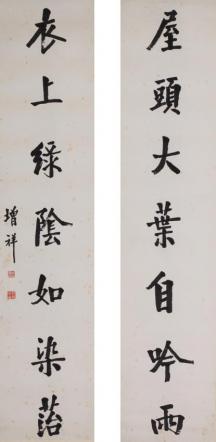 屋頭大葉自吟雨
衣上綠陰如染苔
增祥